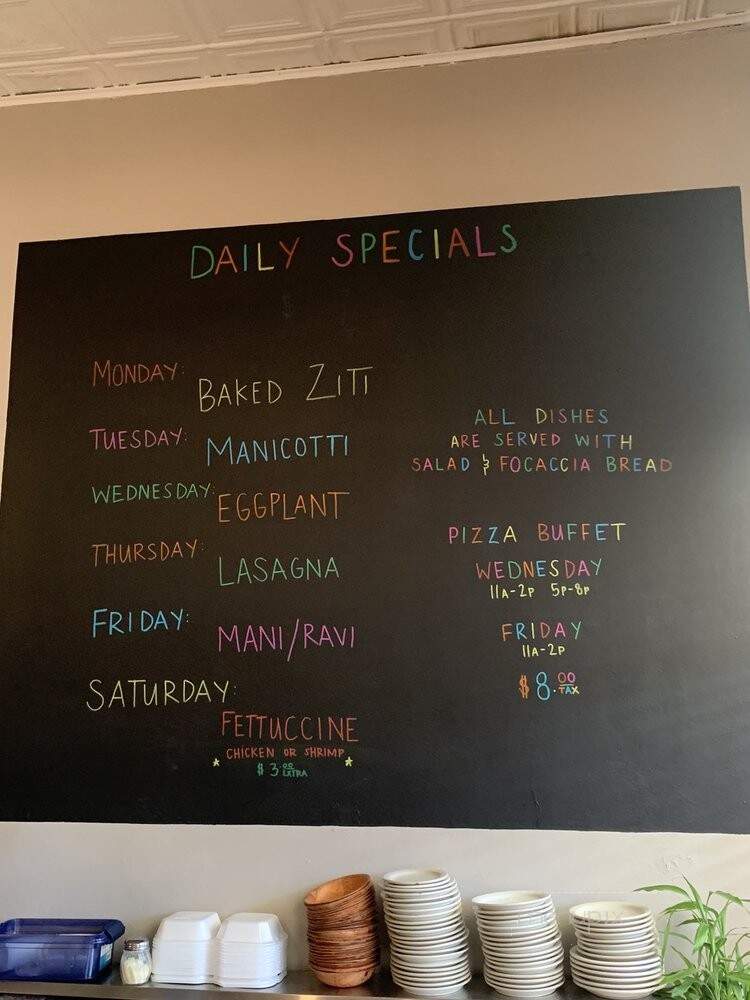 DAILY SPECIALS
MONDAY: BAKED ZITI
TUESDAY: MANICOTTI
WEDNESDAY: EGGPLANT
THURSDAY: LASAGNA
FRIDAY: MANI/RAVI
SATURDAY:
FETTUCCINE
CHICKEN OR SHRIMP
$3.00 EXTRA
ALL DISHES
ARE SERVED WITH
SALAD & FOCACCIA BREAD
PIZZA BUFFET
WEDNESDAY
11A-2P 5P-8P
FRIDAY
11A-2P
$8.00 TAX